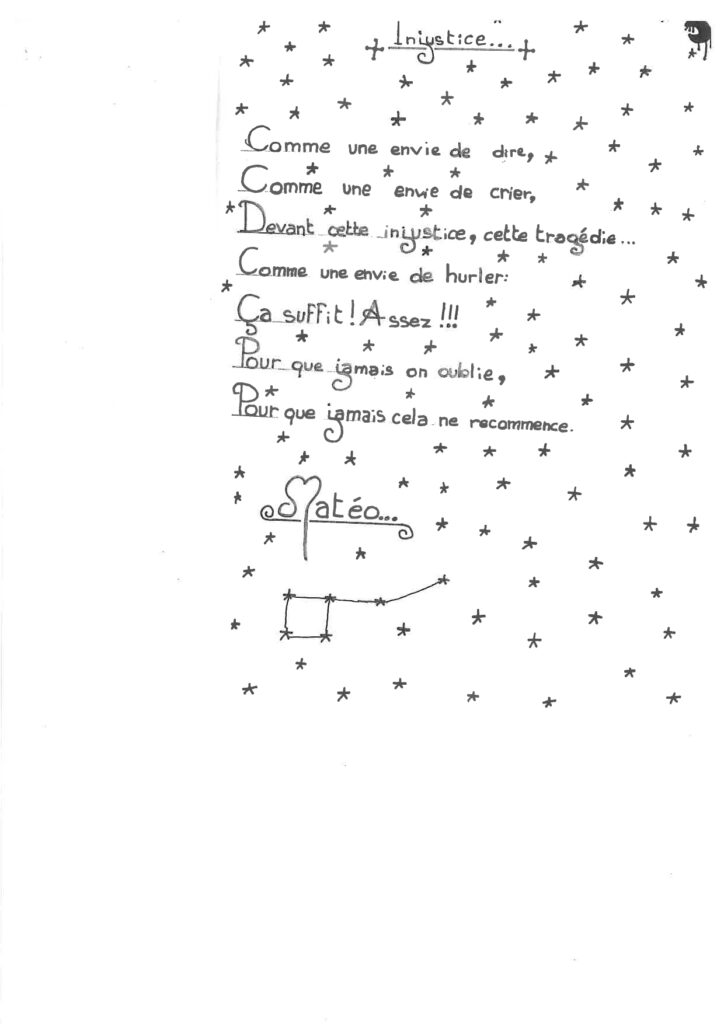 Injustice...
Comme une envie de dire,
Comme une envie de crier,
Devant cette injustice, cette tragédie...
Comme une envie de hurler:
Ça suffit! Assez!!!
Pour que jamais on oublie,
Pour que jamais cela ne recommence.
Matéo...